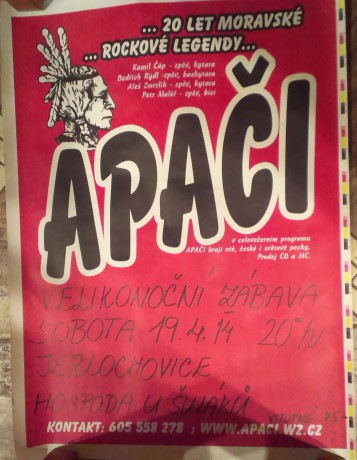 ... 20 LET MORAVSKÉ
... ROCKOVÉ LEGENDY...
Kamil Čáp - zpěv, kytara
Bedřich Rýdl - zpěv, baskytara
Aleš Zmrzlík - zpěv, kytara
Petr Malář - zpěv, bicí
APAČI
v celovečerním programu
APAČI hrají své, české i světové pecky.
Prodej CD a MC.
VELIKONOČNÍ ZÁBAVA
SOBOTA 19.4.14 20 00 h.
JERLOCHOVICE
HOSPODA U ŠUJÁKŮ
VSTUPNÉ 75,-
KONTAKT: 605 558 278 ; WWW.APACI.WZ.CZ